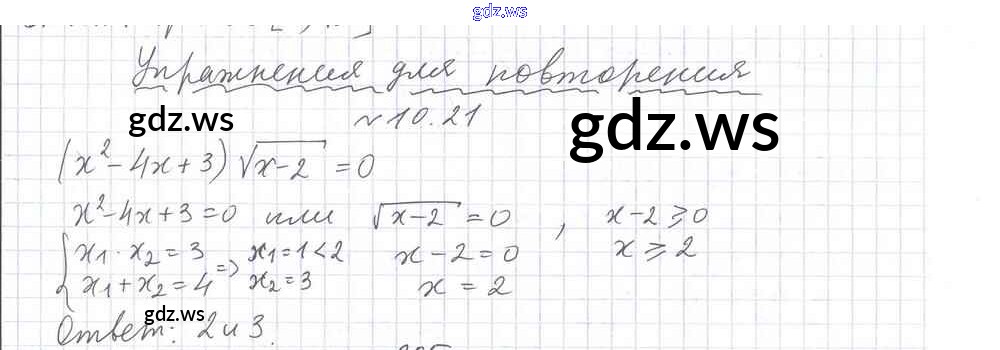 gdz.ws
Упражнения для повторения
gdz.ws
№10.21
gdz.ws
(x² - 4x + 3) √(x-2) = 0
x² - 4x + 3 = 0 или √(x-2) = 0 , x - 2 ⩾ 0
{ x₁ · x₂ = 3 => x₁ = 1 < 2 x - 2 = 0 x ⩾ 2
x₁ + x₂ = 4 x₂ = 3 x = 2
gdz.ws
Ответ: 2 и 3.